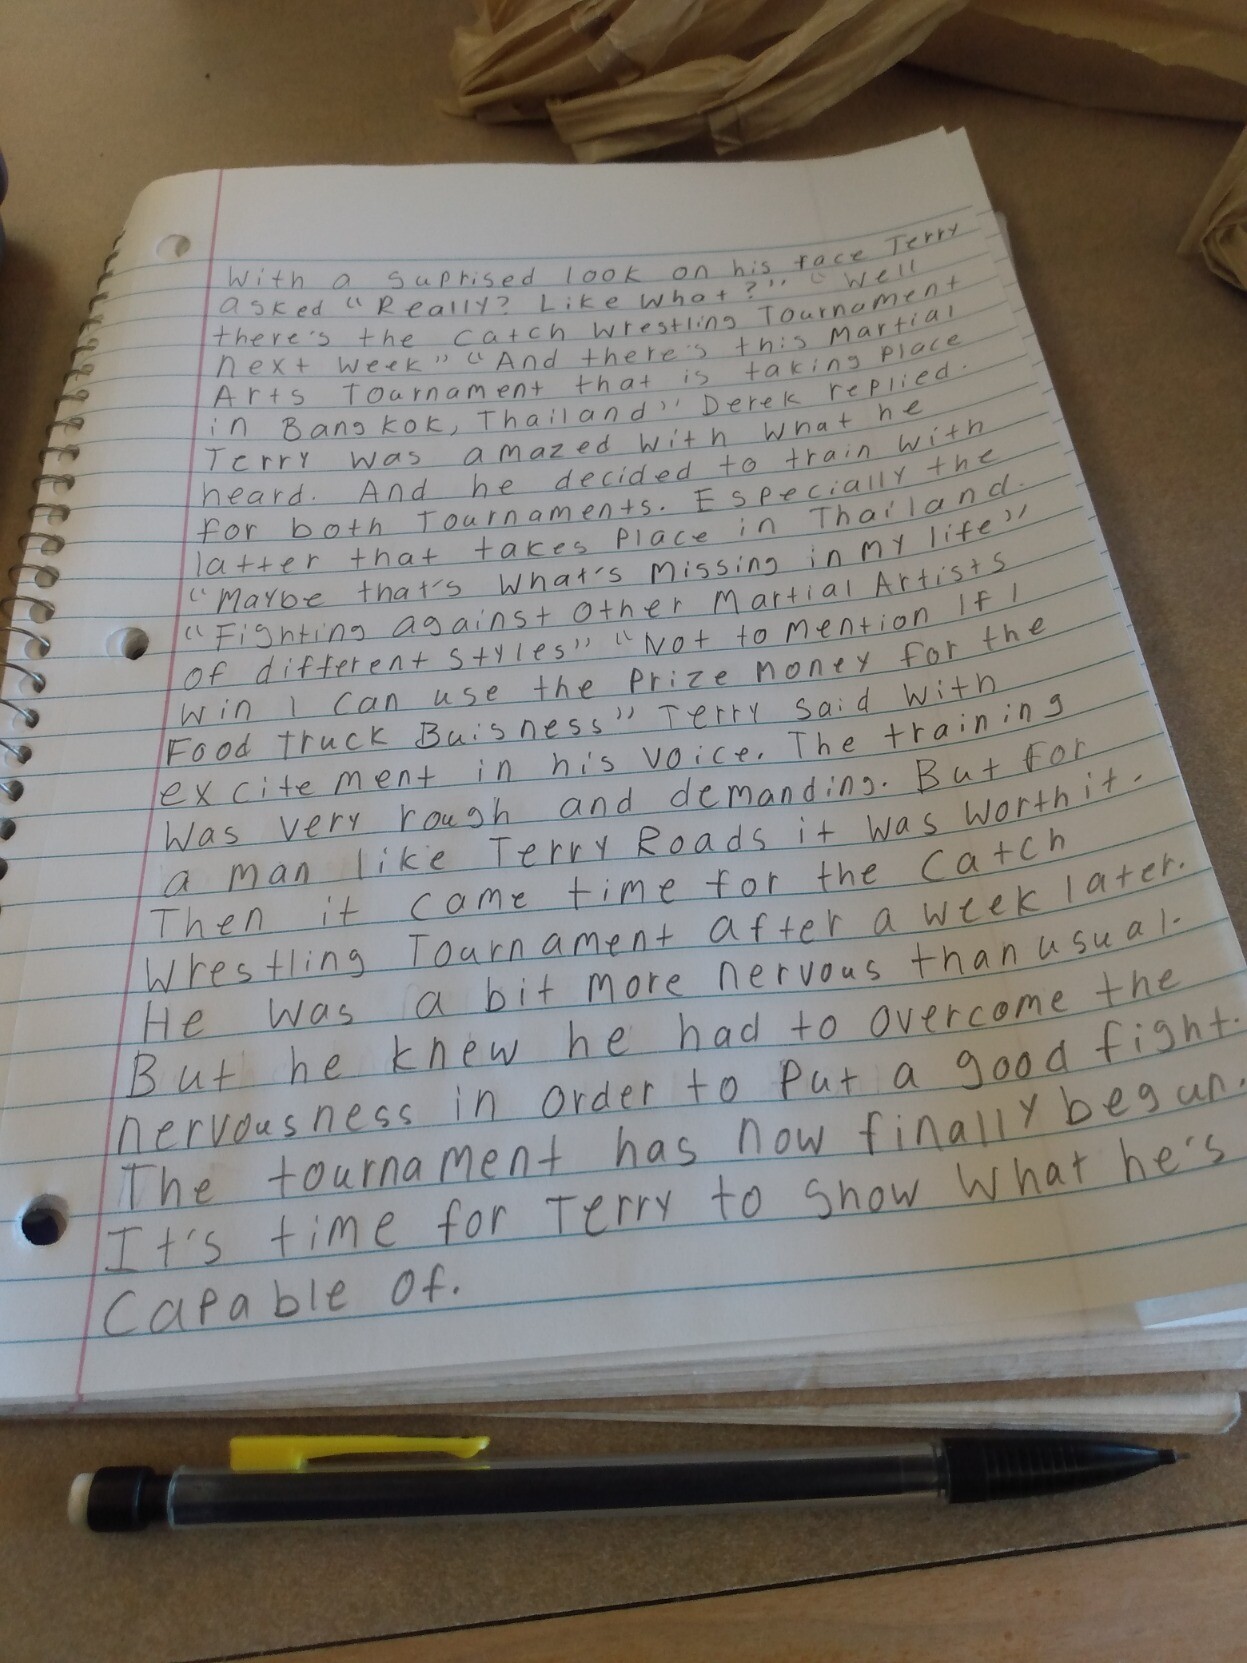 With a suprised look on his face Terry
asked "Really? Like what?" "Well
there's the Catch Wrestling Tournament
next week" "And there's this Martial
Arts Tournament that is taking place
in Bangkok, Thailand" Derek replied.
Terry was amazed with what he
heard. And he decided to train with
for both Tournaments. Especially the
latter that takes place in Thailand.
"Maybe that's what's missing in my life"
"Fighting against other Martial Artists
of different styles" "Not to mention If I
win I can use the prize money for the
Food truck Buisness" Terry said with
excitement in his voice. The training
was very rough and demanding. But for
a man like Terry Roads it was worth it.
Then it came time for the Catch
Wrestling Tournament after a week later.
He was a bit more nervous than usual.
But he knew he had to overcome the
nervousness in order to put a good fight.
The tournament has now finally begun.
It's time for Terry to show what he's
capable of.